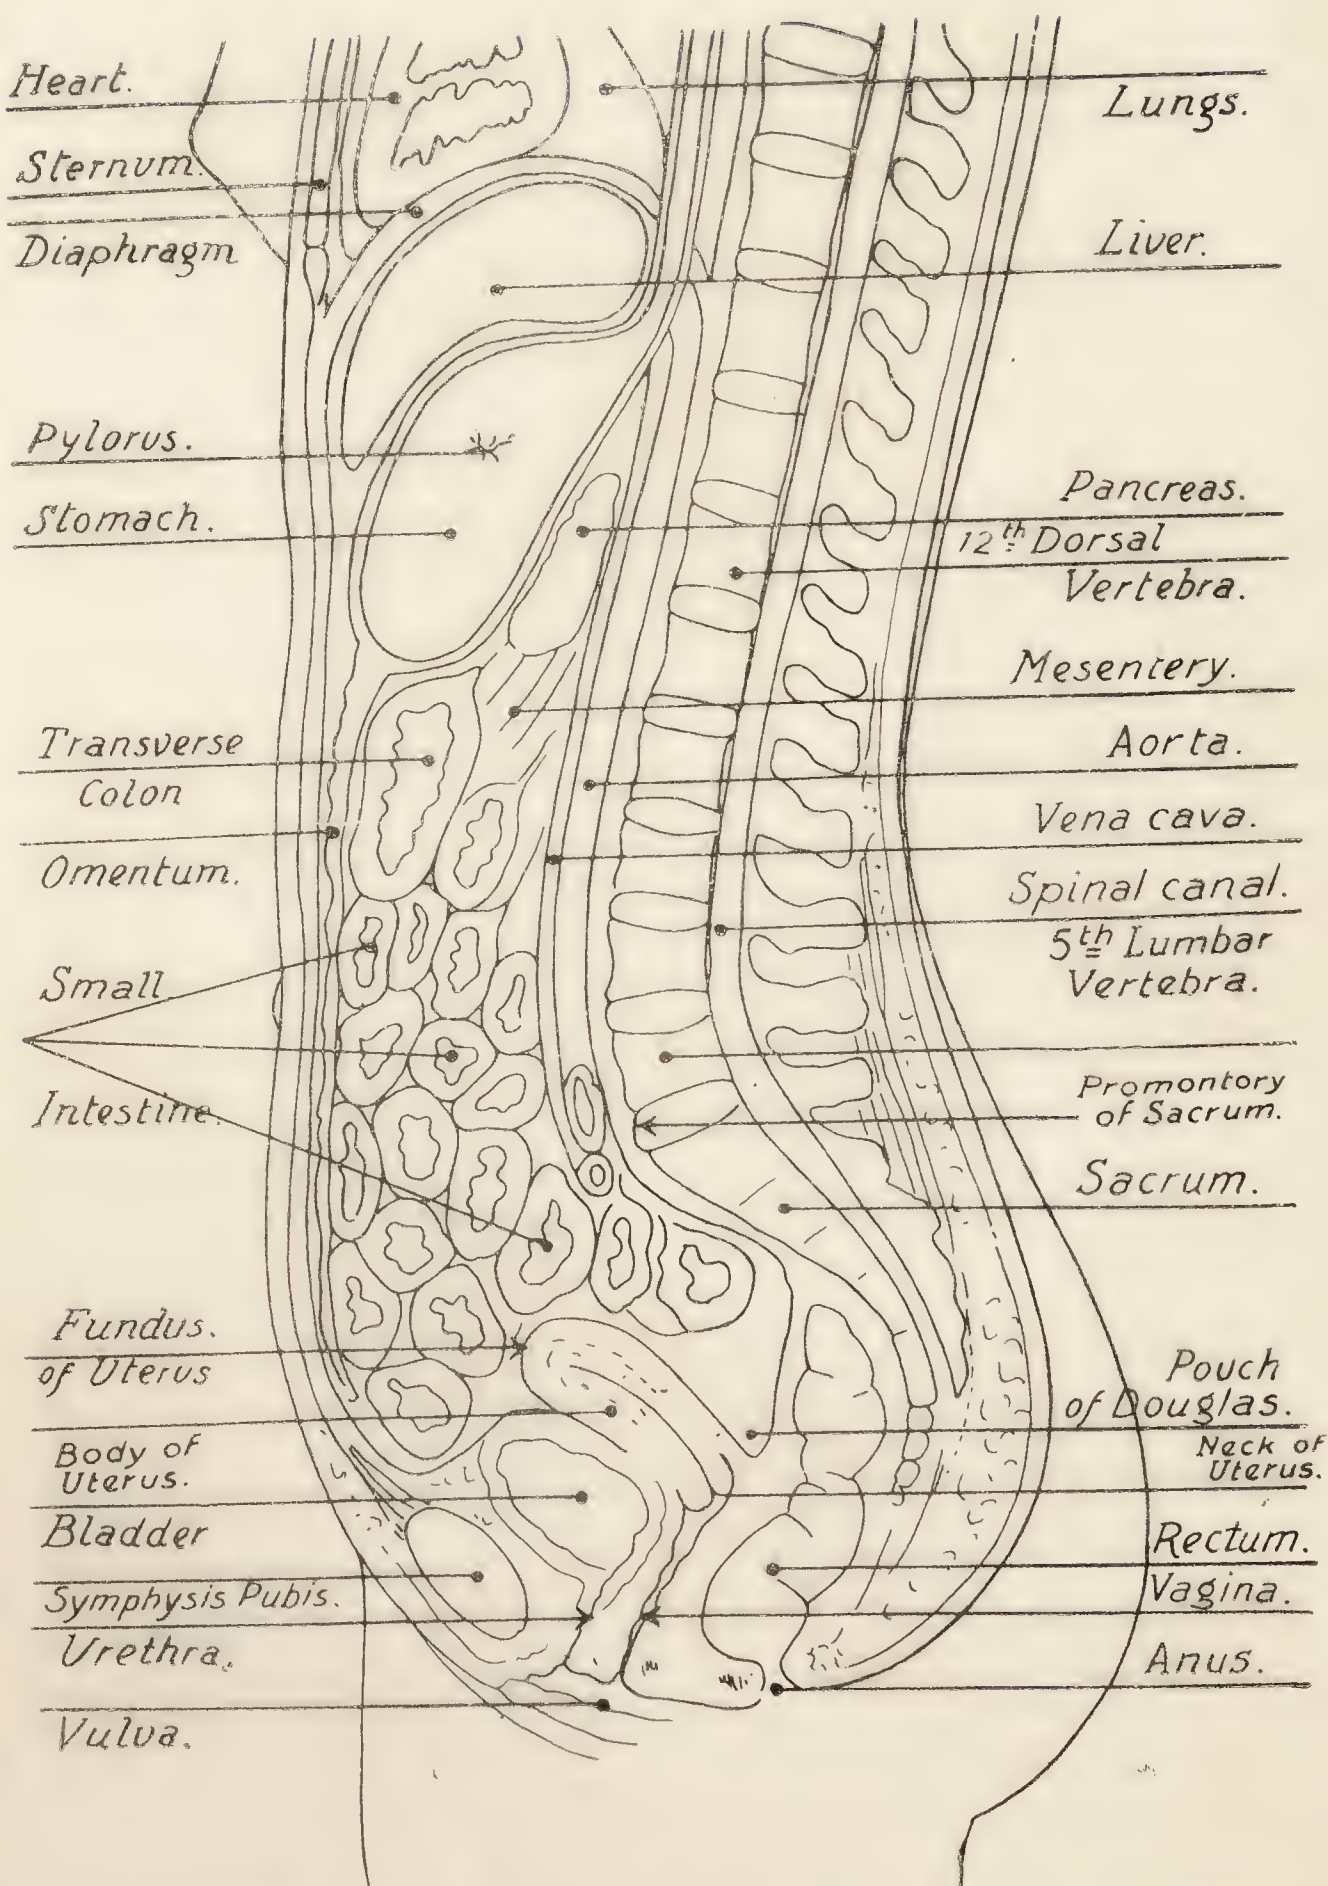 Heart.
Sternum.
Diaphragm
Pylorus.
Stomach.
Transverse
Colon
Omentum.
Small
Intestine.
Fundus.
of Uterus
Body of
Uterus.
Bladder
Symphysis Pubis.
Urethra.
Vulva.
Lungs.
Liver.
Pancreas.
12th Dorsal
Vertebra.
Mesentery.
Aorta.
Vena cava.
Spinal canal.
5th Lumbar
Vertebra.
Promontory
of Sacrum.
Sacrum.
Pouch
of Douglas.
Neck of
Uterus.
Rectum.
Vagina.
Anus.